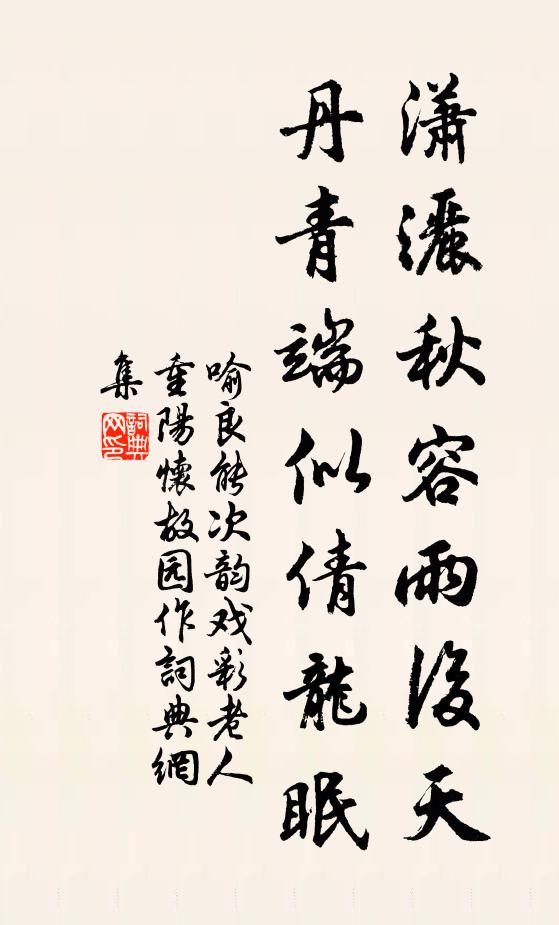 瀟灑秋容雨後天
丹青端似倩龍眠
喻良能次韵戏彩老人
重陽懷故园作詞典網
集
詞典網印